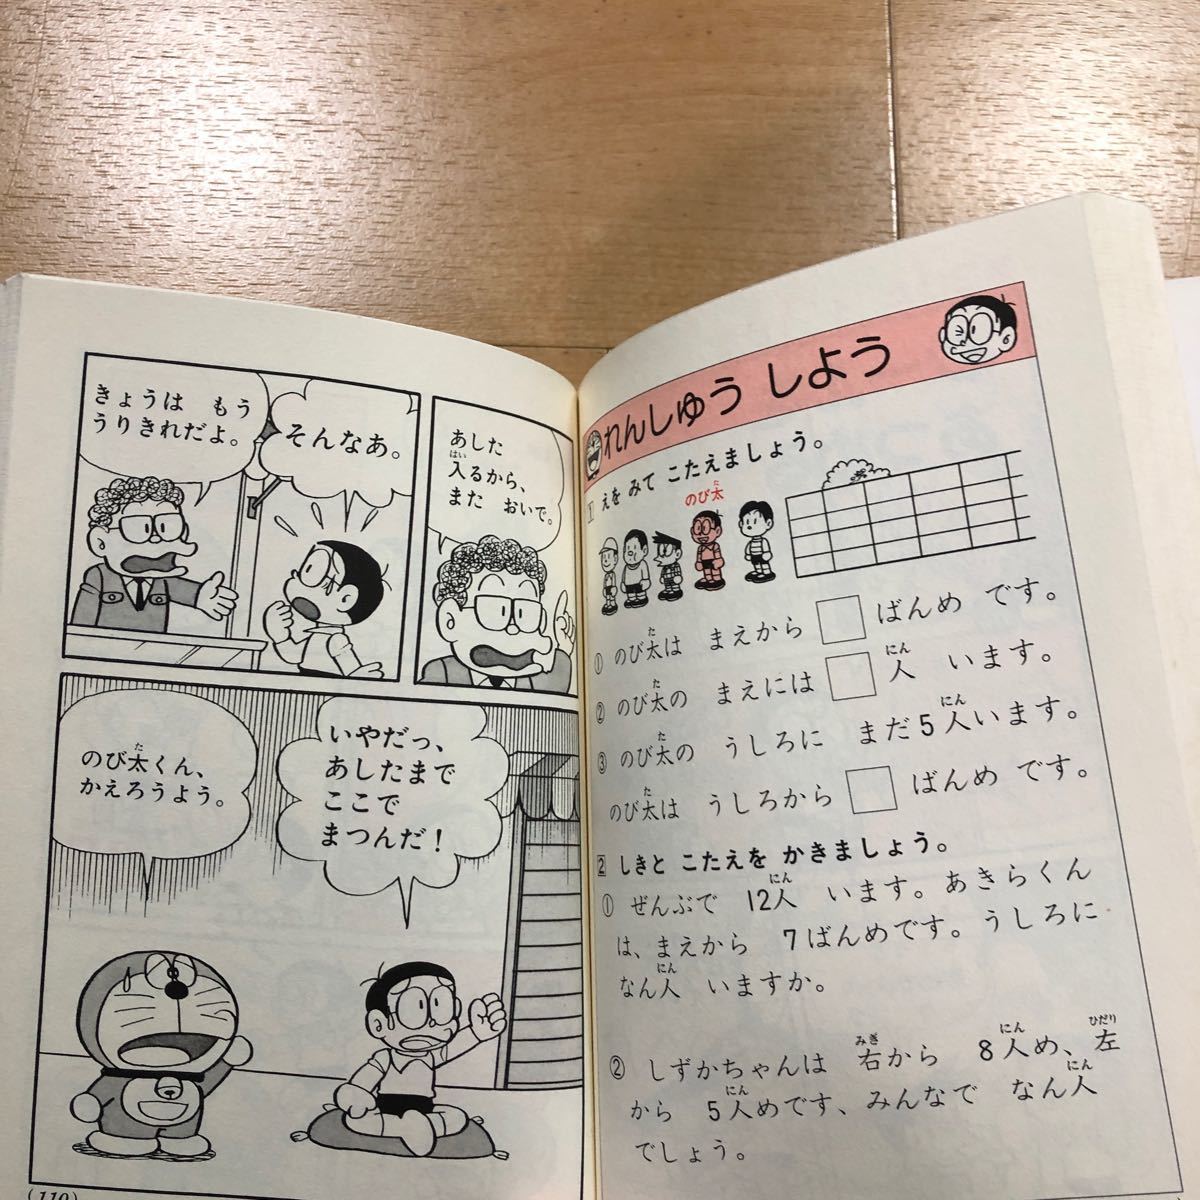 きょうは もう
うりきれだよ。
そんなあ。
あした
入るから、
はい
また おいで。
のび太くん、
た
かえろうよう。
いやだっ、
あしたまで
ここで
まつんだ!
(110)
れんしゅう しよう
1 えを みて こたえましょう。
のび太
た
① のび太は まえから □ ばんめ です。
た
② のび太の まえには □ 人 います。
た にん
③ のび太の うしろに まだ5人います。
た にん
のび太は うしろから □ ばんめ です。
た
2 しきと こたえを かきましょう。
① ぜんぶで 12人 います。あきらくん
にん
は、まえから 7ばんめです。うしろに
なん人 いますか。
にん
② しずかちゃんは 右から 8人め、左
みぎ にん ひだり
から 5人めです、みんなで なん人
にん にん
でしょう。